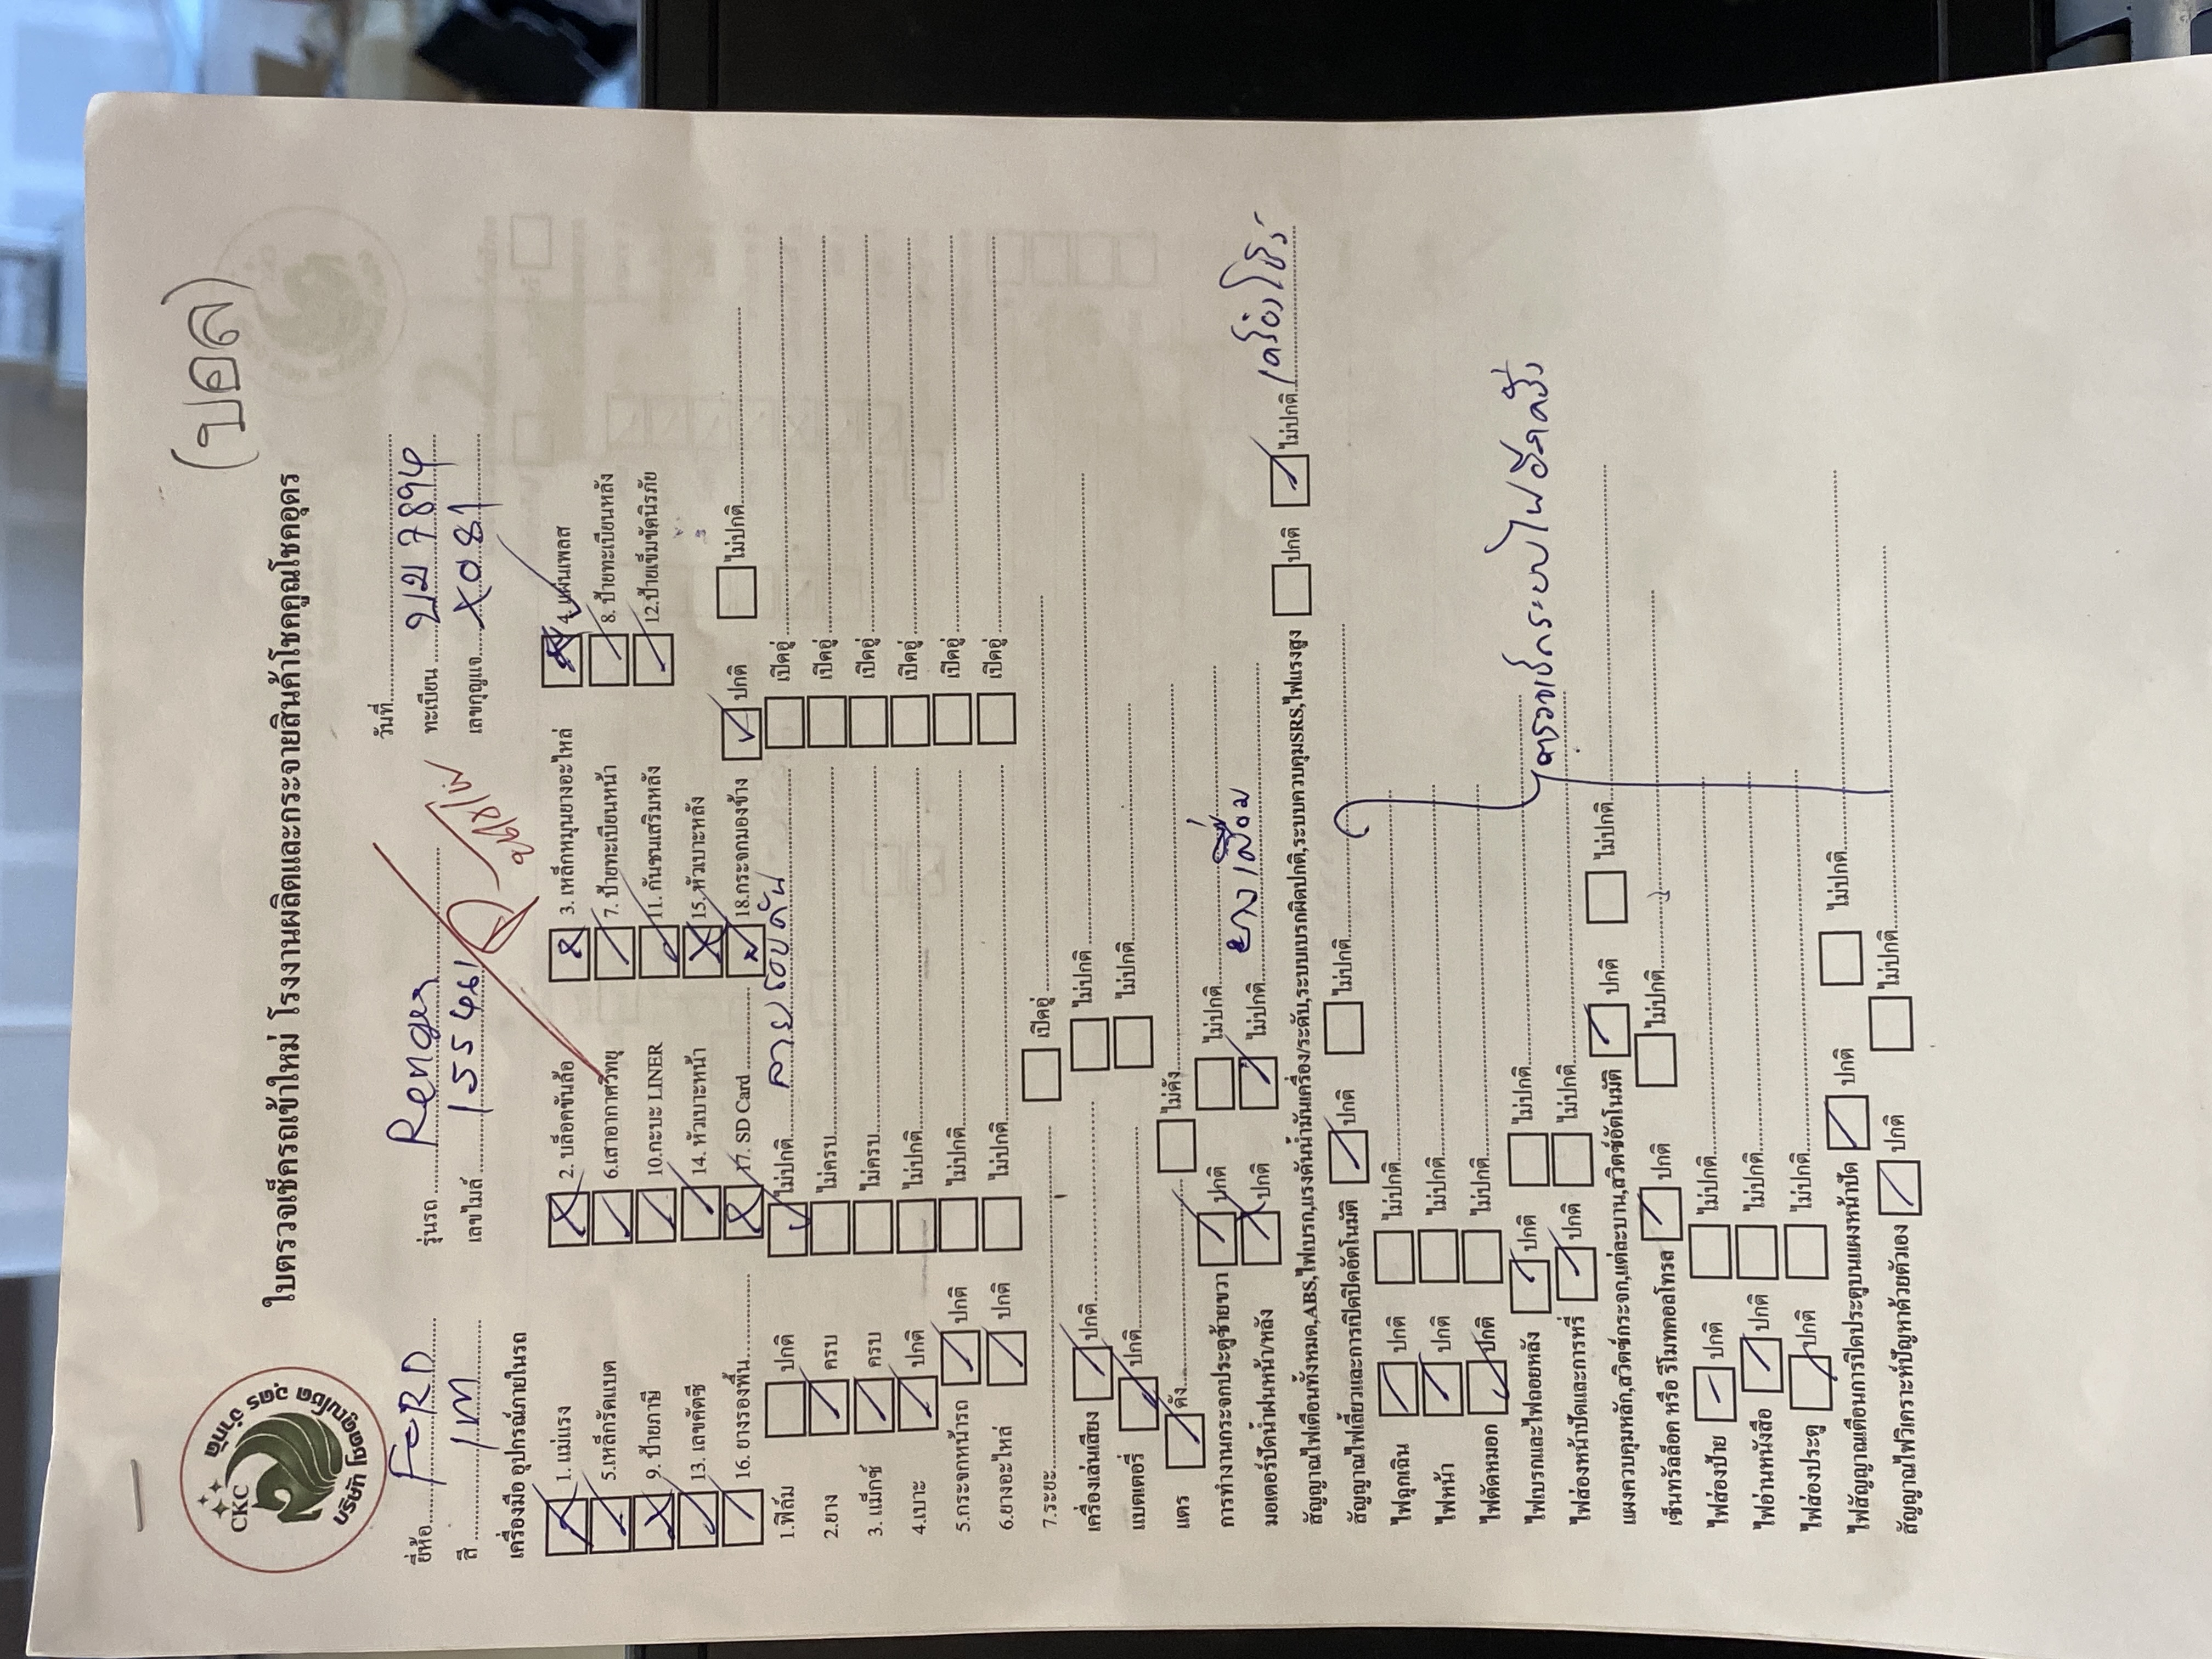 (บอล)
CKC
บริษัท โชคคูณโชค อุดร จำกัด
ใบตรวจเช็ครถเข้าใหม่ โรงงานผลิตและกระจายสินค้าโชคคูณโชคอุดร
วันที่
ยี่ห้อ FORD รุ่นรถ Renger ทะเบียน 7894
สี เลขไมล์ 155461 เลขกุญแจ X081
เครื่องมือ อุปกรณ์ภายในรถ
1. แม่แรง 2. บล็อคขันล้อ 3. เหล็กหมุนยางอะไหล่ 4. แผ่นเพลส
5.เหล็กรัดแบต 6.เสาอากาศวิทยุ 7. ป้ายทะเบียนหน้า 8. ป้ายทะเบียนหลัง
9. ป้ายภาษี 10.กะบะ LINER 11. กันชนเสริมหลัง 12.ป้ายเข็มขัดนิรภัย
13. เลขคัตซี 14. หัวเบาะหน้า 15.หัวเบาะหลัง
16. ยางรองพื้น 17. SD Card 18.กระจกมองข้าง ปกติ ไม่ปกติ
1.ฟิล์ม ปกติ ไม่ปกติ ลายรอบคัน เปิดอู่
2.ยาง ครบ ไม่ครบ เปิดอู่
3. แม็กซ์ ครบ ไม่ครบ เปิดอู่
4.เบาะ ปกติ ไม่ปกติ เปิดอู่
5.กระจกหน้ารถ ปกติ ไม่ปกติ เปิดอู่
6.ยางอะไหล่ ปกติ ไม่ปกติ เปิดอู่
7.ระยะ เปิดอู่
เครื่องเล่นเสียง ปกติ ไม่ปกติ
แบตเตอรี่ ปกติ ไม่ปกติ
แตร ดัง ไม่ดัง
การทำงานกระจกประตูซ้ายขวา ปกติ ไม่ปกติ
มอเตอร์ปัดน้ำฝนหน้า/หลัง ปกติ ไม่ปกติ ยางเสื่อม
สัญญาณไฟเตือนทั้งหมด,ABS,ไฟเบรก,แรงดันน้ำมันเครื่อง/ระดับ,ระบบเบรกผิดปกติ,ระบบควบคุมSRS,ไฟแรงสูง ปกติ ไม่ปกติ เครื่องโชว์
สัญญาณไฟเลี้ยวและการเปิดปิดอัตโนมัติ ปกติ ไม่ปกติ
ไฟฉุกเฉิน ปกติ ไม่ปกติ
ไฟหน้า ปกติ ไม่ปกติ
ไฟตัดหมอก ปกติ ไม่ปกติ
ไฟเบรกและไฟถอยหลัง ปกติ ไม่ปกติ ตรวจเช็คระบบไฟอีกครั้ง
ไฟส่องหน้าปัดและการหรี่ ปกติ ไม่ปกติ
แผงควบคุมหลัก,สวิตช์กระจก,แต่ละบาน,สวิตช์อัตโนมัติ ปกติ ไม่ปกติ
เซ็นทรัลล็อค หรือ รีโมทคอลโทรล ปกติ ไม่ปกติ
ไฟส่องป้าย ปกติ ไม่ปกติ
ไฟอ่านหนังสือ ปกติ ไม่ปกติ
ไฟส่องประตู ปกติ ไม่ปกติ
ไฟสัญญาณเตือนการปิดประตูบนแผงหน้าปัด ปกติ ไม่ปกติ
สัญญาณไฟวิเคราะห์ปัญหาด้วยตัวเอง ปกติ ไม่ปกติ